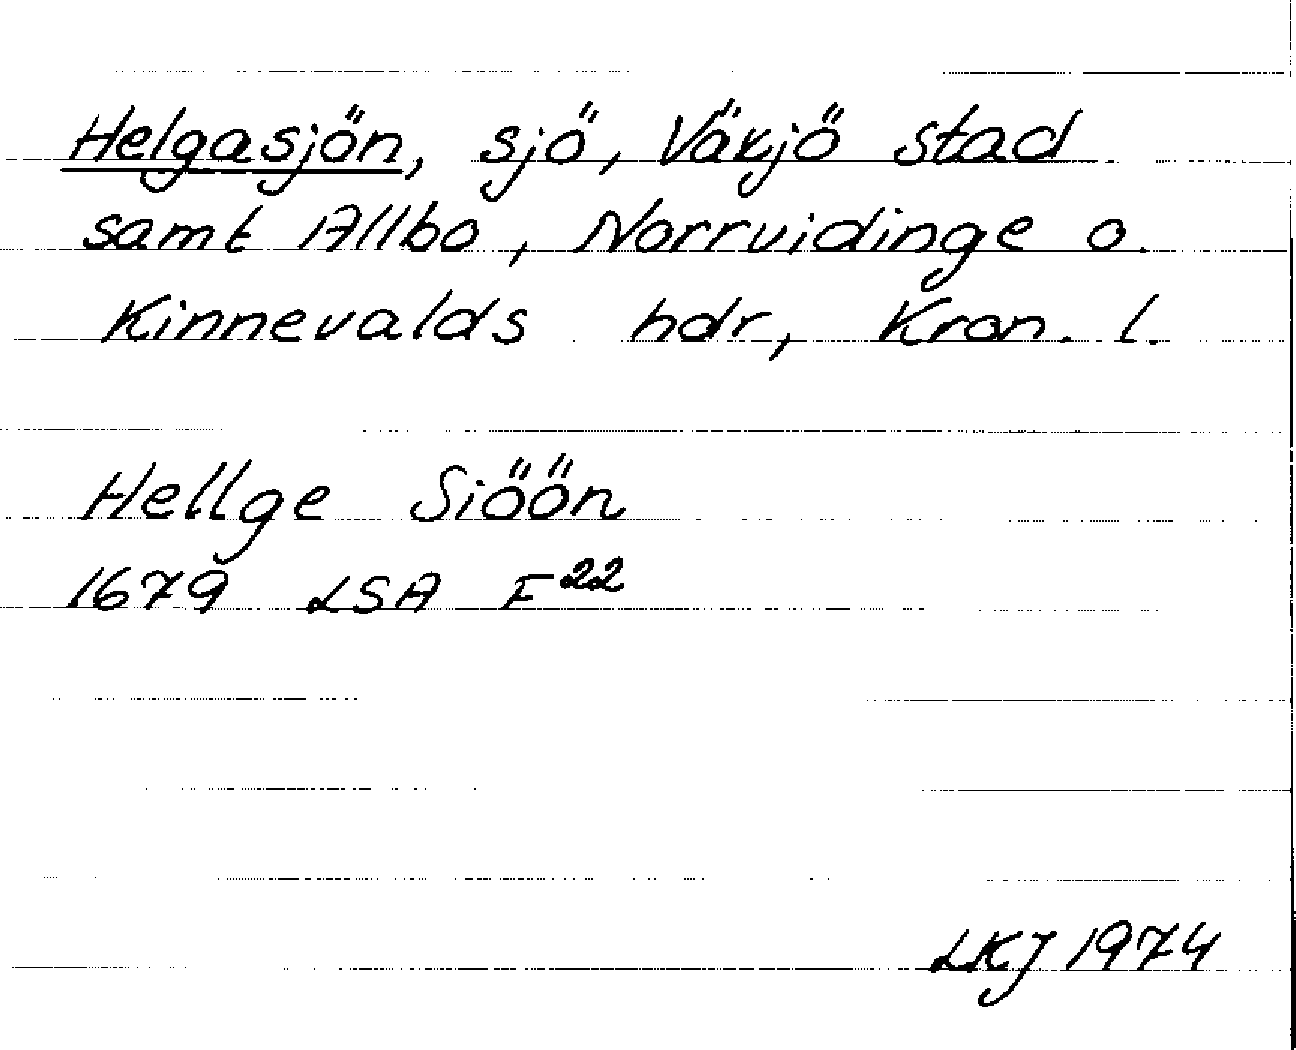 Helgasjön, sjö, Växjö stad
samt Allbo, Norrvidinge o.
Kinnevalds hdr, Kron. l.
Hellge Siöön
1679 LSA F22
LKJ 1974